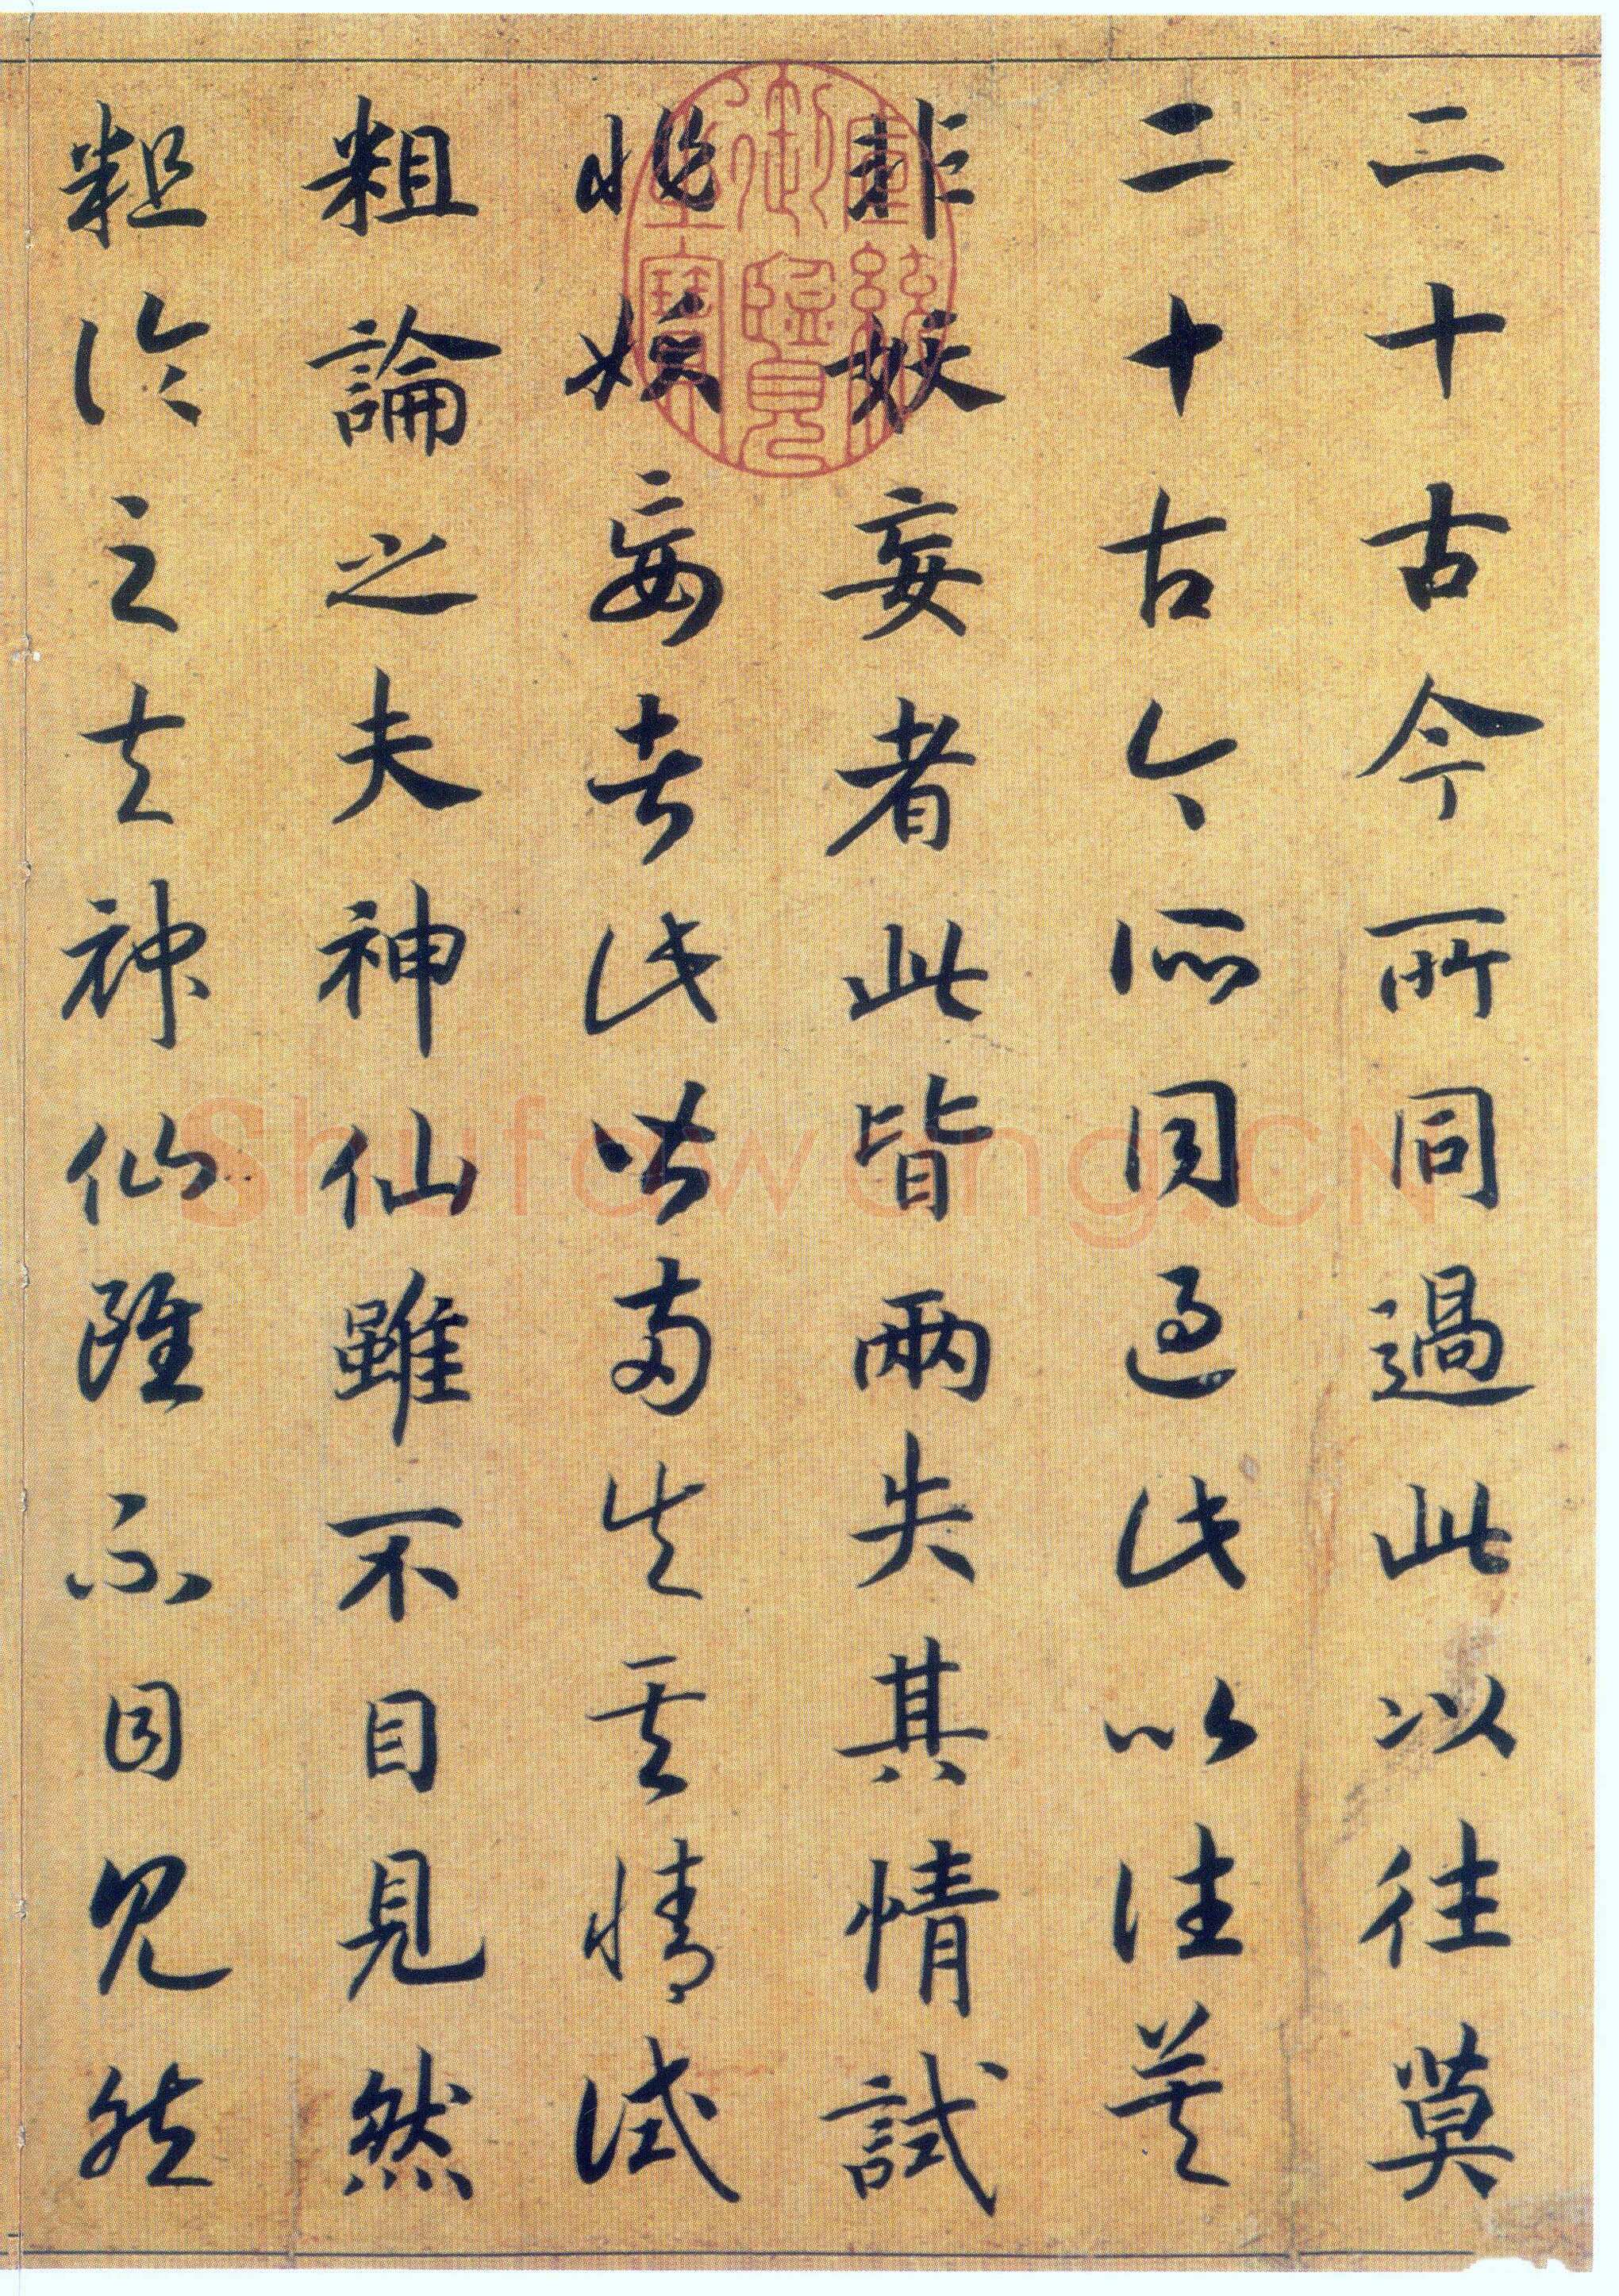 二十古今所同過此以往莫
二十古今所同過此以往莫
非妖妄者此皆兩失其情試
非妖妄者此皆兩失其情試
粗論之夫神仙雖不目見然
粗論之夫神仙雖不目見然
宣統御覽之寶
Shufawang.CN